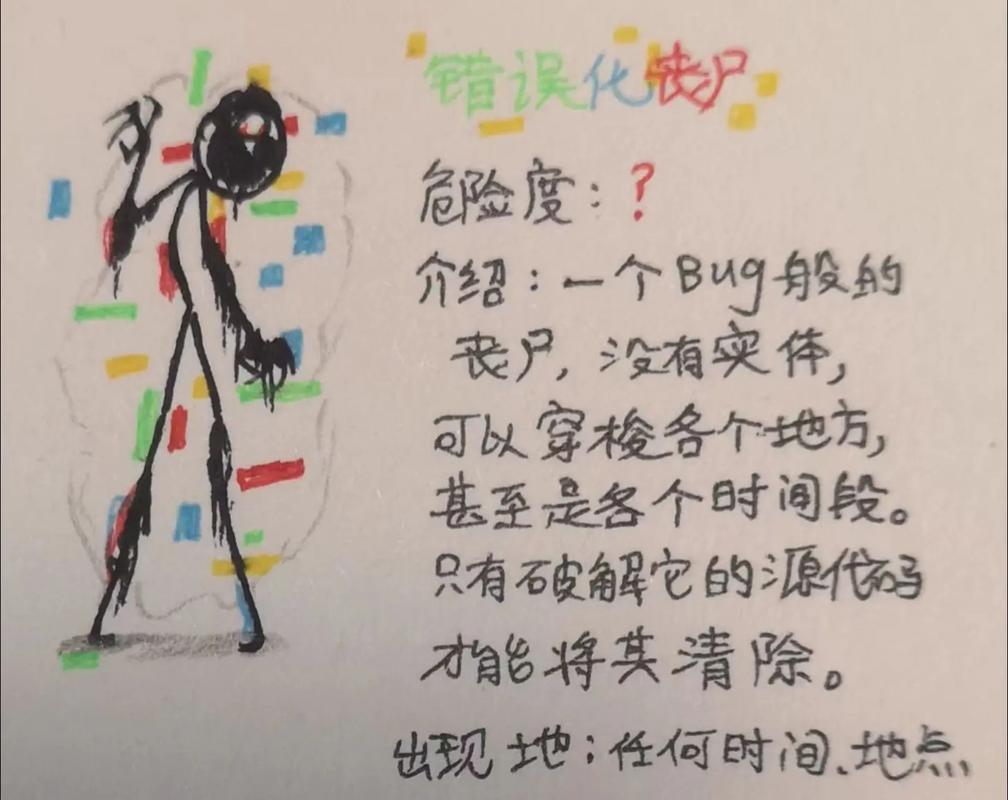 错误化丧尸
危险度：？
介绍：一个Bug般的
丧尸，没有实体，
可以穿梭各个地方，
甚至是各个时间段。
只有破解它的源代码
才能将其清除。
出现地：任何时间、地点